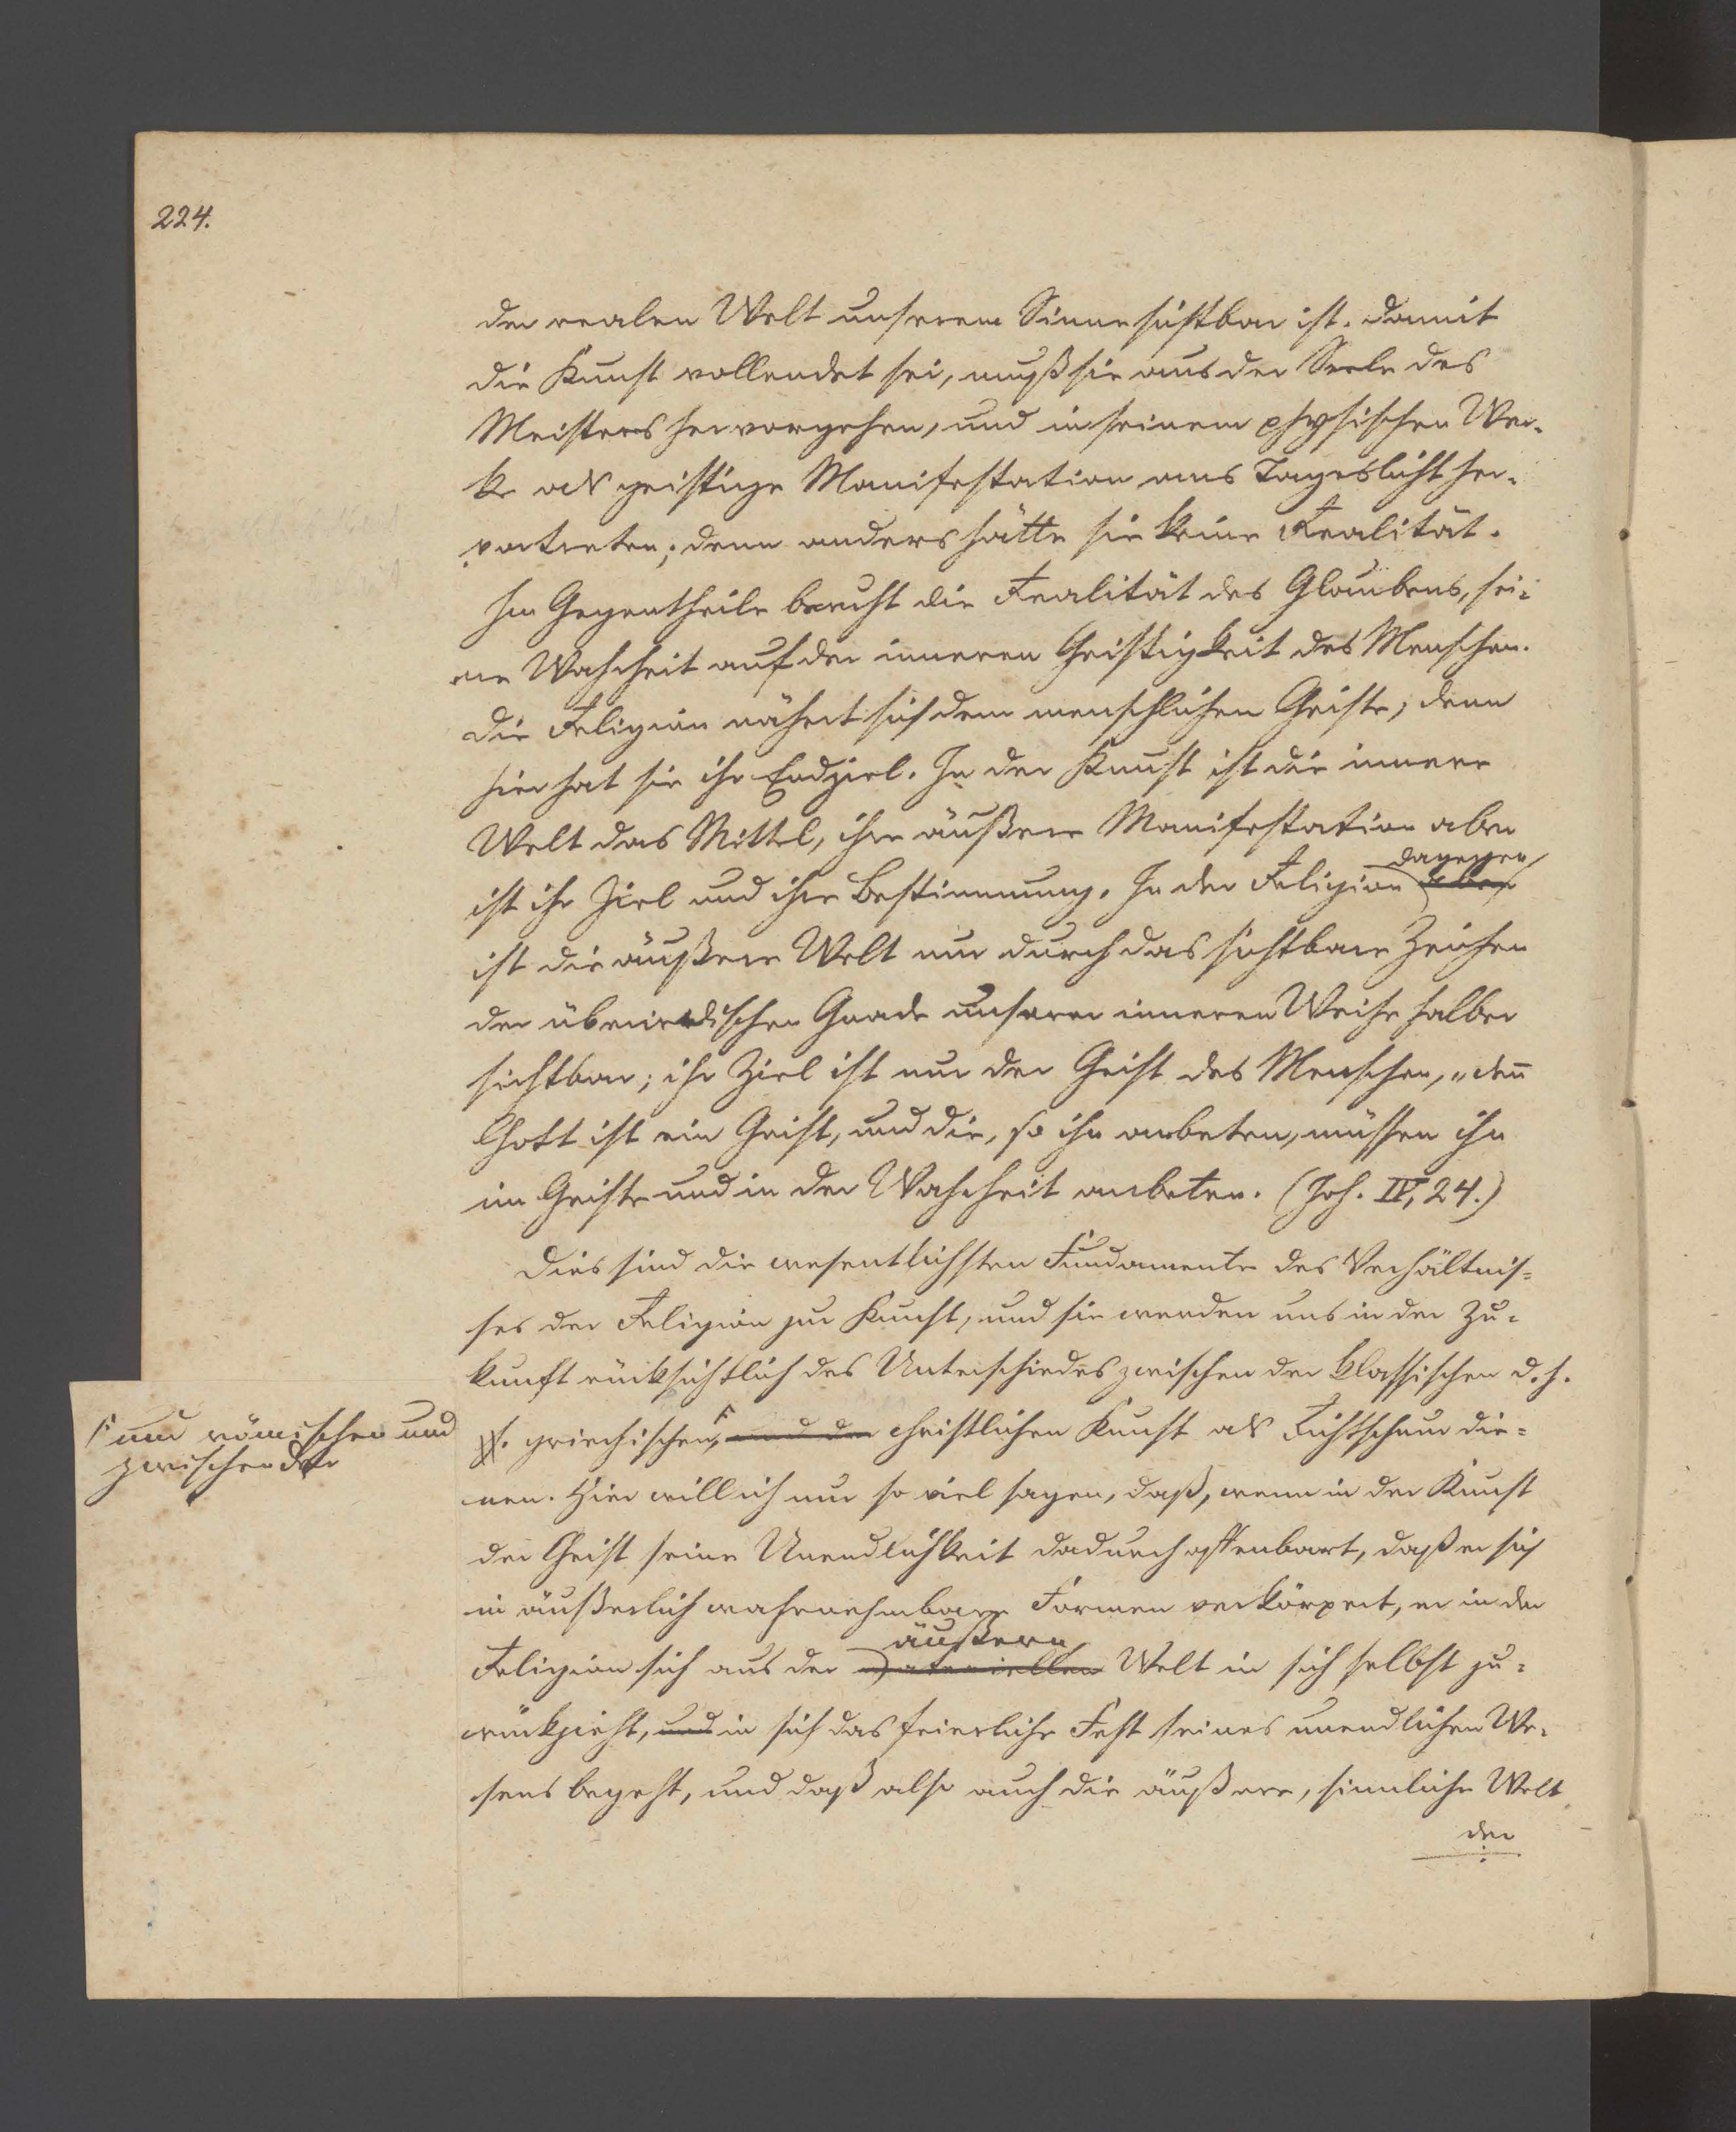 224.
der realen Welt unserem Sinne sichtbar ist. Damit
die Kunst vollendet sei, muß sie aus der Seele des
Meisters hervorgehen, und in seinem physischen Wer-
ke als geistige Manifestation ans Tageslicht her-
vortreten; denn anders hätte sie keine Realität.
Im Gegentheile beruht die Realität des Glaubens, sei-
ne Wahrheit auf der inneren Geistigkeit des Menschen.
Die Religion nähert sich dem menschlichen Geiste; denn
hier hat sie ihr Endziel. In der Kunst ist die innere
Welt das Mittel, ihre äußere Manifestation aber
ist ihr Ziel und ihre Bestimmung. In der Religion aber dagegen
ist die äußere Welt nur durch das sichtbare Zeichen
der überirdischen Gnade unserer inneren Weihe halber
sichtbar; ihr Ziel ist nur der Geist des Menschen, „denn
Gott ist ein Geist, und die, so ihn anbeten, müssen ihn
im Geiste und in der Wahrheit anbeten. (Joh. IV, 24.)
Dies sind die wesentlichsten Fundamente des Verhältnis-
ses der Religion zur Kunst, und sie werden uns in der Zu-
kunft rücksichtlich des Unterschiedes zwischen der klassischen d. h.
griechischen, und der christlichen Kunst als Richtschnur die-
und römischen und
zwischen der
nen. Hier will ich nur so viel sagen, daß, wenn in der Kunst
der Geist seine Unendlichkeit dadurch offenbart, daß er sich
in äußerlich wahrnehmbare Formen verkörpert, er in der
Religion sich aus der materiellen äußern Welt in sich selbst zu-
rückzieht, und in sich das feierliche Fest seines unendlichen We-
sens begeht, und daß also auch die äußere, sinnliche Welt
der